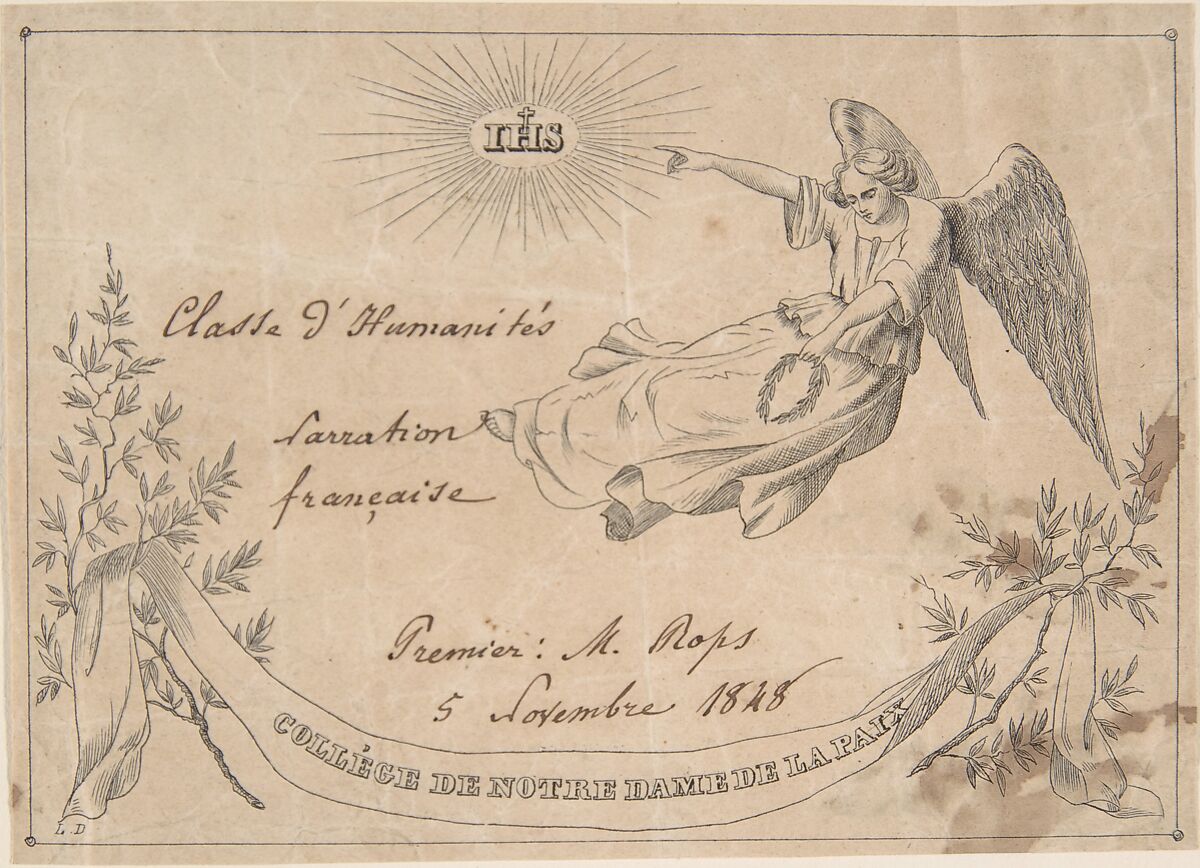 IHS
Classe d'Humanités
Narration
française
Premier: M. Rops
5 Novembre 1848
COLLÉGE DE NOTRE DAME DE LA PAIX
L.D